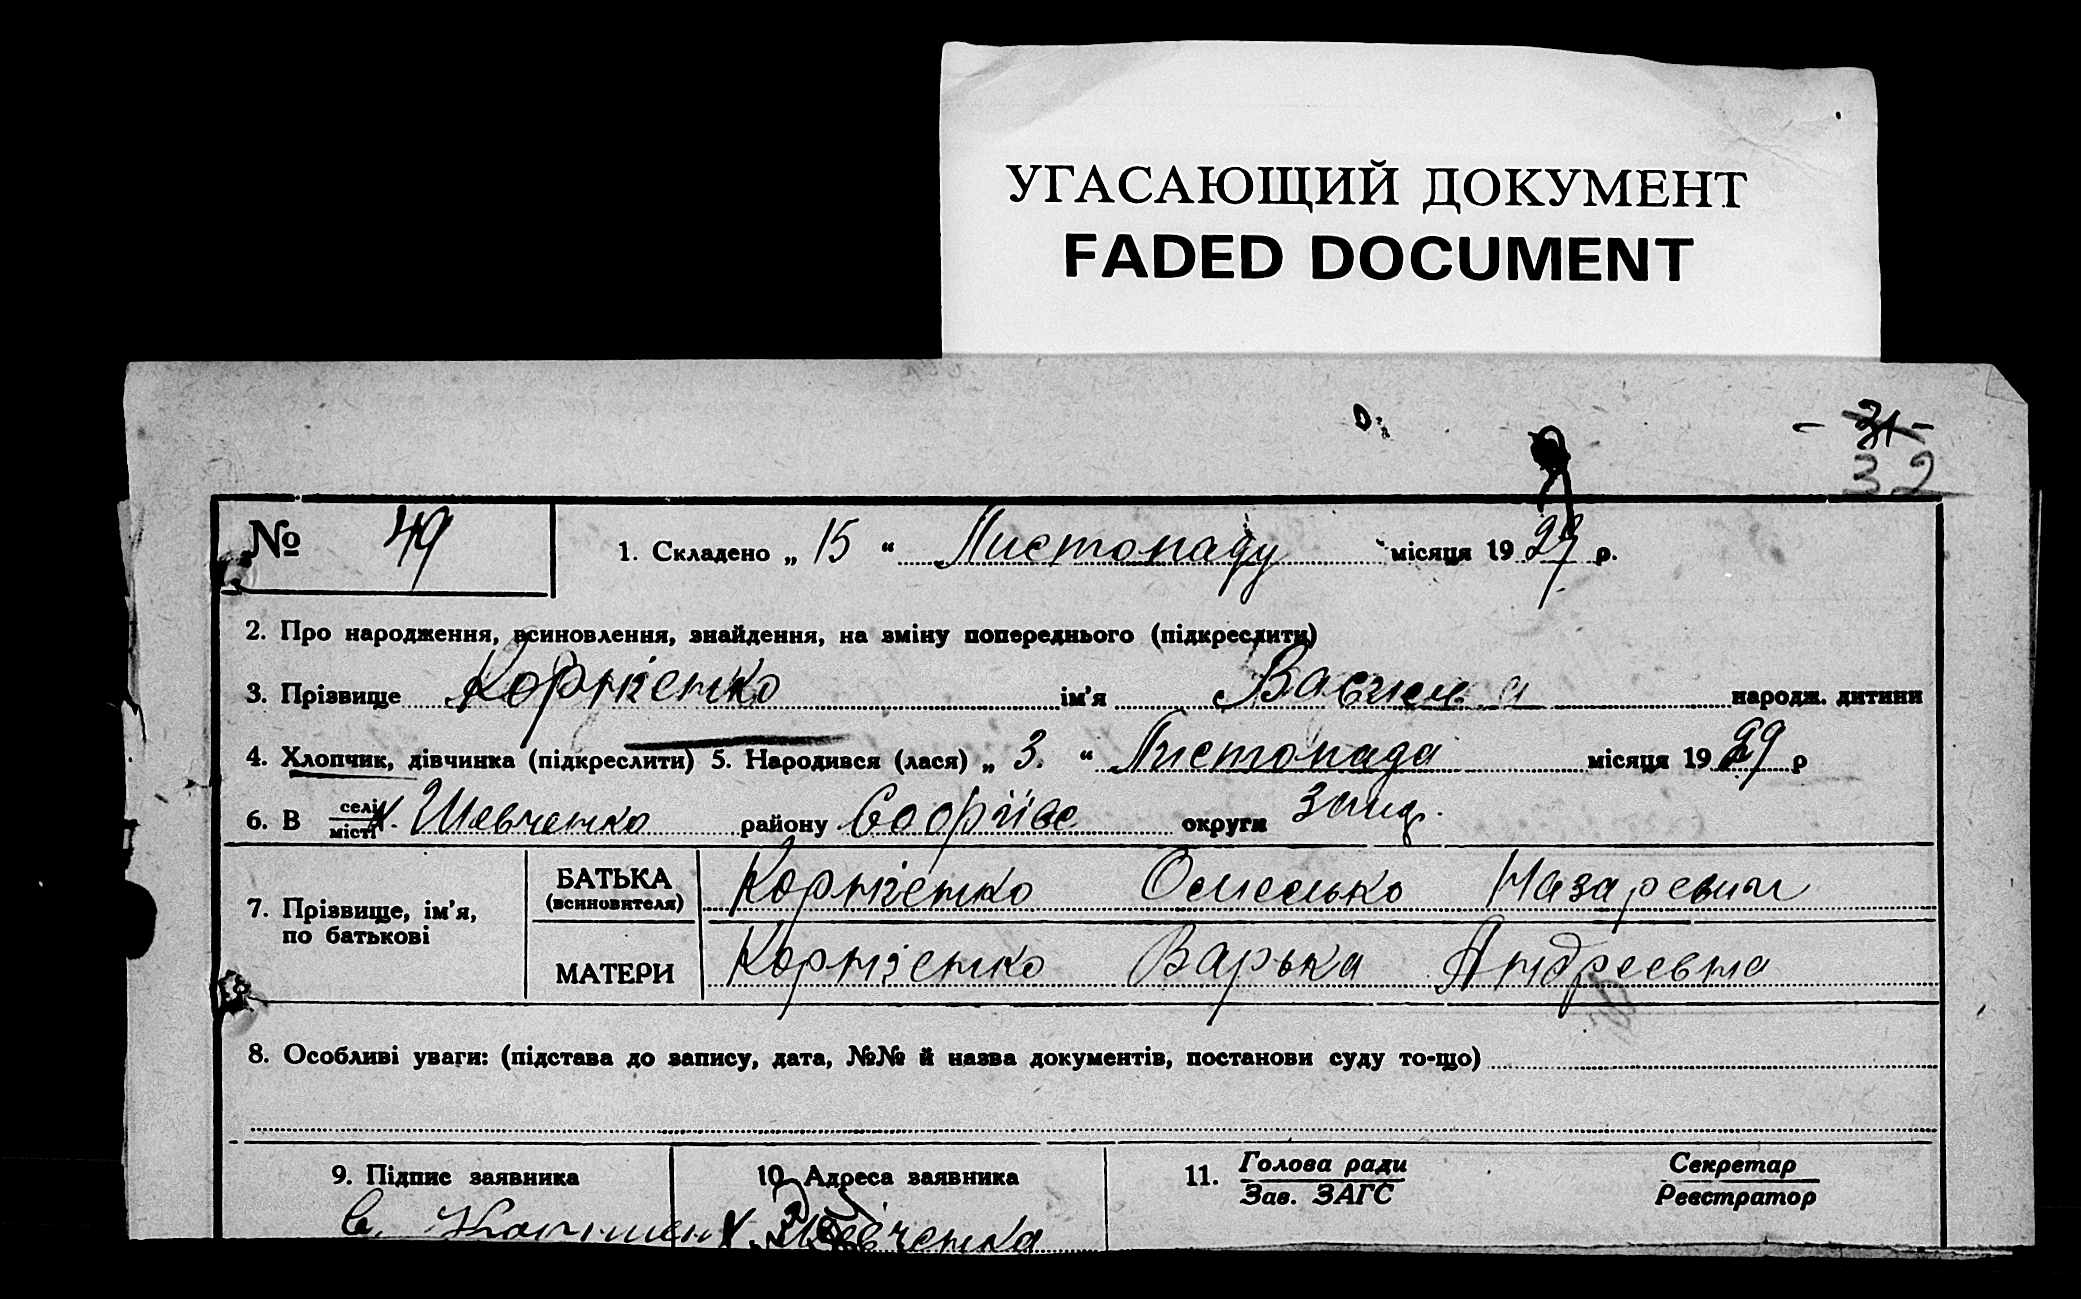 УГАСАЮЩИЙ ДОКУМЕНТ
FADED DOCUMENT
- 31 -
32
№ 49
1. Складено „ 15 “ Листопаду місяця 1929 р.
2. Про народження, всиновлення, знайдення, на зміну попереднього (підкреслити)
3. Прізвище Корнієнко ім’я народж. дитини
4. Хлопчик, дівчинка (підкреслити) 5. Народився (лася) „ 3. “ Листопада місяця 1929 р
6. В селі місті х. Шевченко району округи Запор.
7. Прізвище, ім’я, по батькові
БАТЬКА (всиновителя) Корнієнко Омелько Назаревич
МАТЕРИ Корнієнко Варька Андреевна
8. Особливі уваги: (підстава до запису, дата, №№ й назва документів, постанови суду то-що)
9. Підпис заявника 10. Адреса заявника 11. Голова ради Секретар
Зав. ЗАГС Реєстратор
х. Шевченка